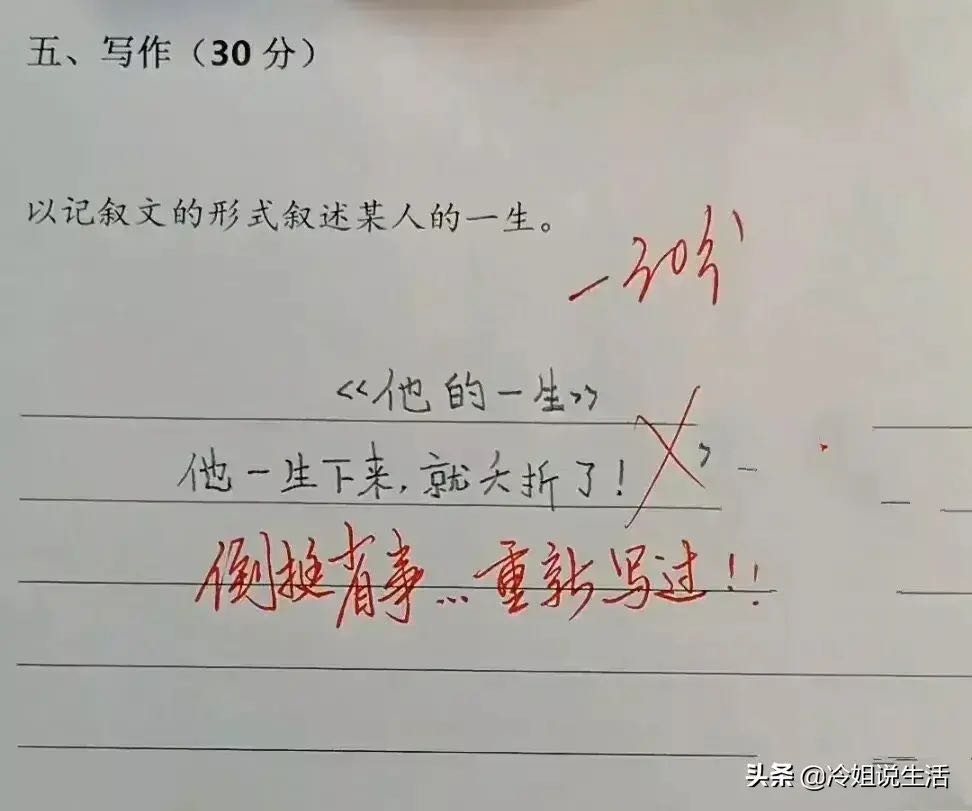 五、写作（30 分）
以记叙文的形式叙述某人的一生。
-30分
《他的一生》
他一生下来，就夭折了！
倒挺省事…重新写过！！
头条 @冷姐说生活